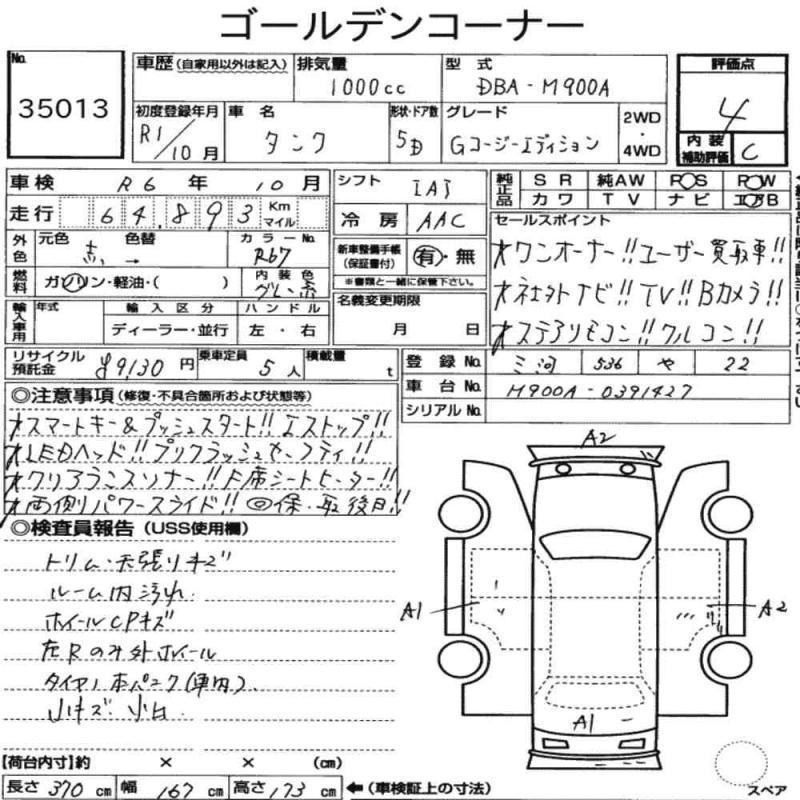 ゴールデンコーナー
No. 35013
車歴 (自家用以外は記入)
排気量 1000cc
型式 DBA-M900A
評価点 4
初度登録年月 R1/10月
車名 タンク
形状・ドア数 5D
グレード Gコージーエディション
2WD・4WD
内装補助評価 C
車検 R6年10月
シフト IAT
純正品 SR 純AW PS PW
カワ TV ナビ エアB
走行 64,893 Km マイル
冷房 AAC
セールスポイント
外色 元色 赤 → 色替 カラーNo. R67
新車整備手帳(保証書付) 有・無
※書類と一緒に保管下さい。
★ワンオーナー!!ユーザー買取車!!
燃料 ガソリン・軽油・( )
内装色 グレー・赤
名義変更期限 月 日
★ネセットナビ!!TV!!Bカメラ!!
輸入車用 年式 輸入区分 ハンドル
ディーラー・並行 左・右
★ステアリモコン!!クルコン!!
リサイクル預託金 ¥9,130円
乗車定員 5人
積載量 t
登録No. 三河 536 や 22
車台No. M900A-0391427
シリアルNo.
◎注意事項(修復・不具合箇所および状態等)
★スマートキー&プッシュスタート!!Iストップ!!
★LEDヘッド!!プリクラッシュセーフティ!!
★クリアランスソナー!!F席シートヒーター!!
★両側パワースライド!!◎保・取後日!!
◎検査員報告(USS使用欄)
トリム・天張りキズ
ルーム内汚れ
ホイールCPキズ
左Rのみ外ホイール
タイヤ1本パンク(車内)
小キズ 小凹
A2
A1
A2
A1
【荷台内寸】約 × × (cm)
長さ 370 cm 幅 167 cm 高さ 173 cm ←(車検証上の寸法)
スペア